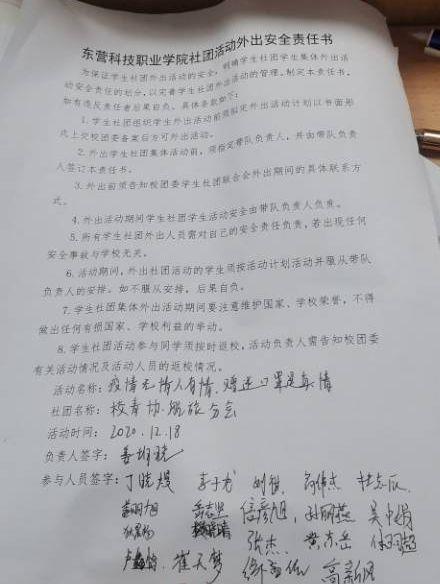 东营科技职业学院社团活动外出安全责任书
为保证学生社团外出活动的安全,明确学生社团集体外出活
动安全责任的划分,以完善学生社团外出活动的管理,制定本责任书。
如有违反责任者后果自负。具体条款如下:
1.学生社团组织学生外出活动前须拟定外出活动计划以书面形
式上交校团委备案后方可外出活动。
2.外出学生社团集体活动前,须指定带队负责人,并由带队负责
人签订本责任书。
3.外出前须告知校团委学生社团联合会外出期间的具体联系方
式。
4.外出活动期间学生社团学生活动安全由带队负责人负责。
5.所有学生社团外出人员需对自己的安全责任负责,若出现任何
安全事故与学校无关。
6.活动期间,外出社团活动的学生须按活动计划活动并服从带队
负责人的安排。如不服从安排,后果自负。
7.学生社团集体外出活动期间要注意维护国家、学校荣誉,不得
做出任何有损国家、学校利益的举动。
8.学生社团活动参与同学须按时返校,活动负责人需告知校团委
有关活动情况及活动人员的返校情况。
活动名称:疫情无情人有情,赠送口罩是真情
社团名称:校青协 分会
活动时间:2020.12.18
负责人签字:
参与人员签字:丁晓煜 李子龙
岳志卫 信彦旭 孙丽燕 吴中娟
张杰 黄东岳
崔天梦 高新风